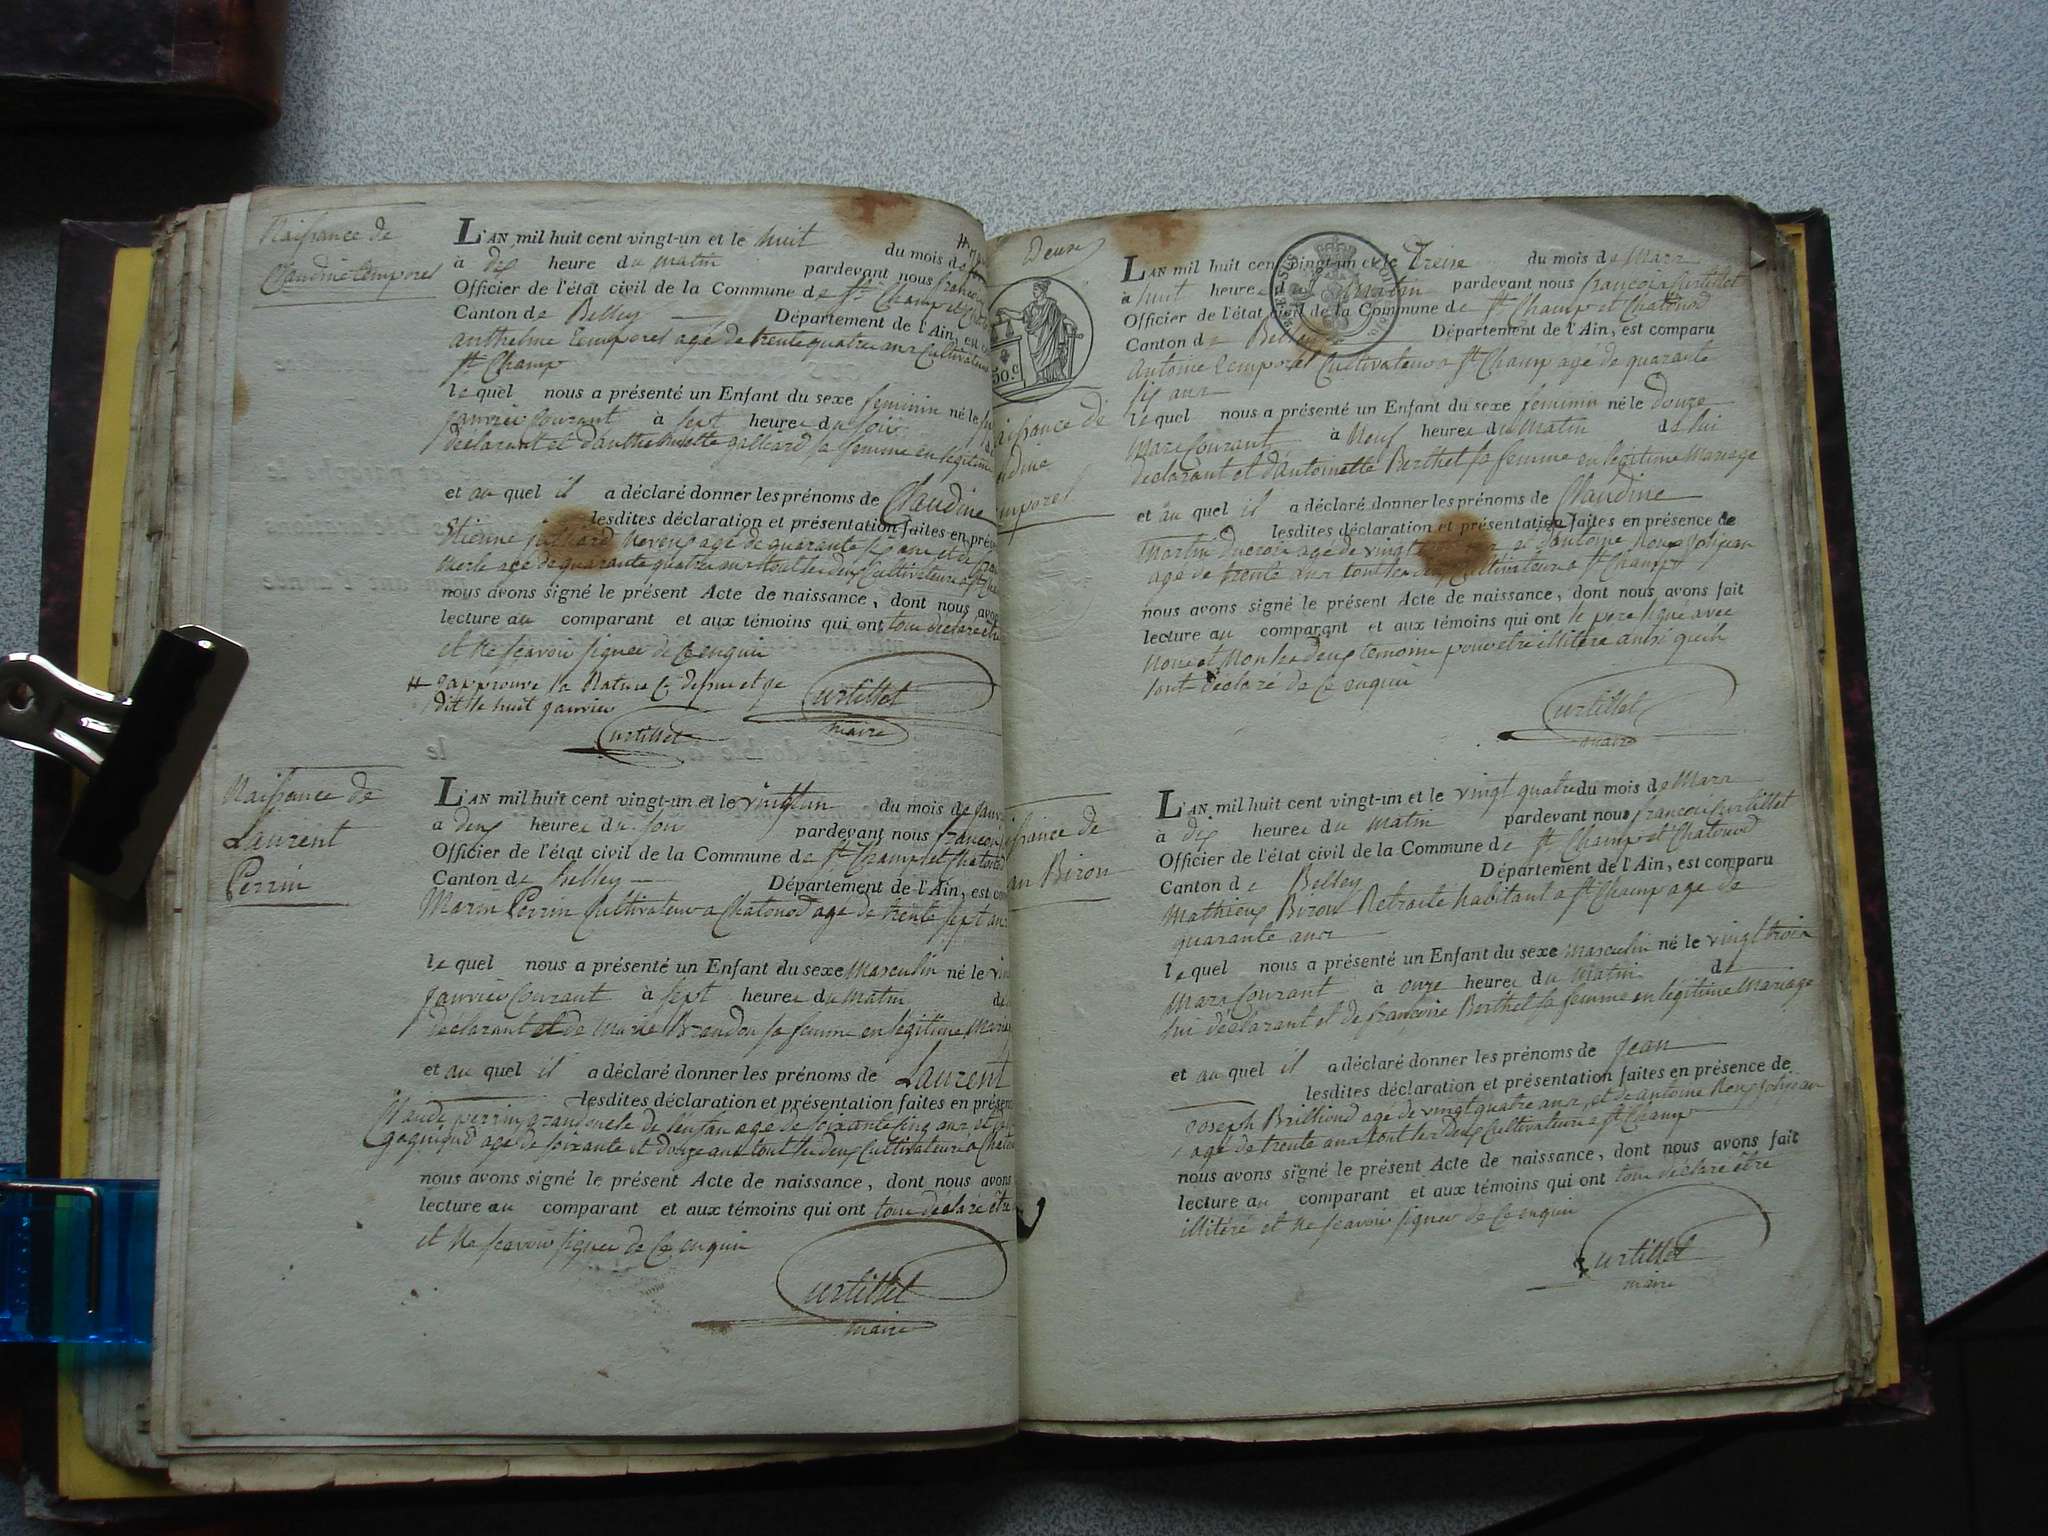 Naissance de
Claudine Temporel
L'AN mil huit cent vingt-un et le huit du mois de
à dix heures du matin pardevant nous françois
Officier de l'état civil de la Commune de St Champ et
Canton de Belley Département de l'Ain, est
anthelme Temporel agé de trente quatre ans Cultivateur
St Champ
le quel nous a présenté un Enfant du sexe feminin né le
janvier Courant à sept heures du soir
déclarant et galliard sa femme en légitime
et au quel il a déclaré donner les prénoms de Claudine
lesdites déclaration et présentation faites en
Etienne agé de quarante six ans et de
Merle agé de quarante quatre ans tout les deux Cultivateurs a St
nous avons signé le présent Acte de naissance, dont nous avons
lecture au comparant et aux témoins qui ont tous déclaré être
et ne scavoir signer de ce enquis
# japprouve la Rature Ci dessus et
dit le huit janvier
Curtillet
Curtillet
maire
Naissance de
Laurent
Perrin
L'AN mil huit cent vingt-un et le vingt un du mois de
à deux heures du soir pardevant nous françois
Officier de l'état civil de la Commune de St Champ et Chatonod
Canton de Belley Département de l'Ain, est
Marin Perrin Cultivateur a Chatonod agé de trente sept ans
le quel nous a présenté un Enfant du sexe Masculin né le
janvier Courant à sept heures du Matin
déclarant et de Marie Brandon sa femme en légitime
et au quel il a déclaré donner les prénoms de Laurent
lesdites déclaration et présentation faites en
Claude perrin grand oncle de lenfan agé de soixante cinq ans et
agé de soixante et douze ans tout les deux Cultivateurs a
nous avons signé le présent Acte de naissance, dont nous avons
lecture au comparant et aux témoins qui ont tous déclaré être
et ne scavoir signer de ce enquis
Curtillet
maire
Deux
50.c
L'AN mil huit cent vingt-un et le Treize du mois de Mars
à huit heures du Matin pardevant nous françois Curtillet
Officier de l'état civil de la Commune de St Champ et Chatonod
Canton de Belley Département de l'Ain, est comparu
Antoine Temporel Cultivateur a St Champ agé de quarante
six ans
le quel nous a présenté un Enfant du sexe feminin né le douze
Mars Courant à Neuf heures du Matin de lui
déclarant et d'Antoinette Berthet sa femme en légitime Mariage
et au quel il a déclaré donner les prénoms de Claudine
lesdites déclaration et présentation faites en présence de
Martin Ducros agé de vingt ans et d'antoine Roux Jolijean
agé de trente ans tout les deux Cultivateurs a St Champ
nous avons signé le présent Acte de naissance, dont nous avons fait
lecture au comparant et aux témoins qui ont le pere signé avec
Nous et Non les deux temoins pour etre illitere ainsi quils
lont déclaré de Ce enquis
Curtillet
maire
L'AN mil huit cent vingt-un et le vingt quatre du mois de Mars
à dix heures du matin pardevant nous francois Curtillet
Officier de l'état civil de la Commune de St Champ et Chatonod
Canton de Belley Département de l'Ain, est comparu
Mathieux Biron Retraité habitant a St Champ agé de
quarante ans
le quel nous a présenté un Enfant du sexe masculin né le vingt trois
Mars Courant à onze heures du Matin de
lui déclarant et de françoise Berthet sa femme en légitime Mariage
et au quel il a déclaré donner les prénoms de Jean
lesdites déclaration et présentation faites en présence de
Joseph Brilliond agé de vingt quatre ans, et de antoine Roux Jolijean
agé de trente ans tout les deux Cultivateurs a St Champ
nous avons signé le présent Acte de naissance, dont nous avons fait
lecture au comparant et aux témoins qui ont tous declaré être
illitéré et ne scavoir signer de Ce enquis
Curtillet
maire